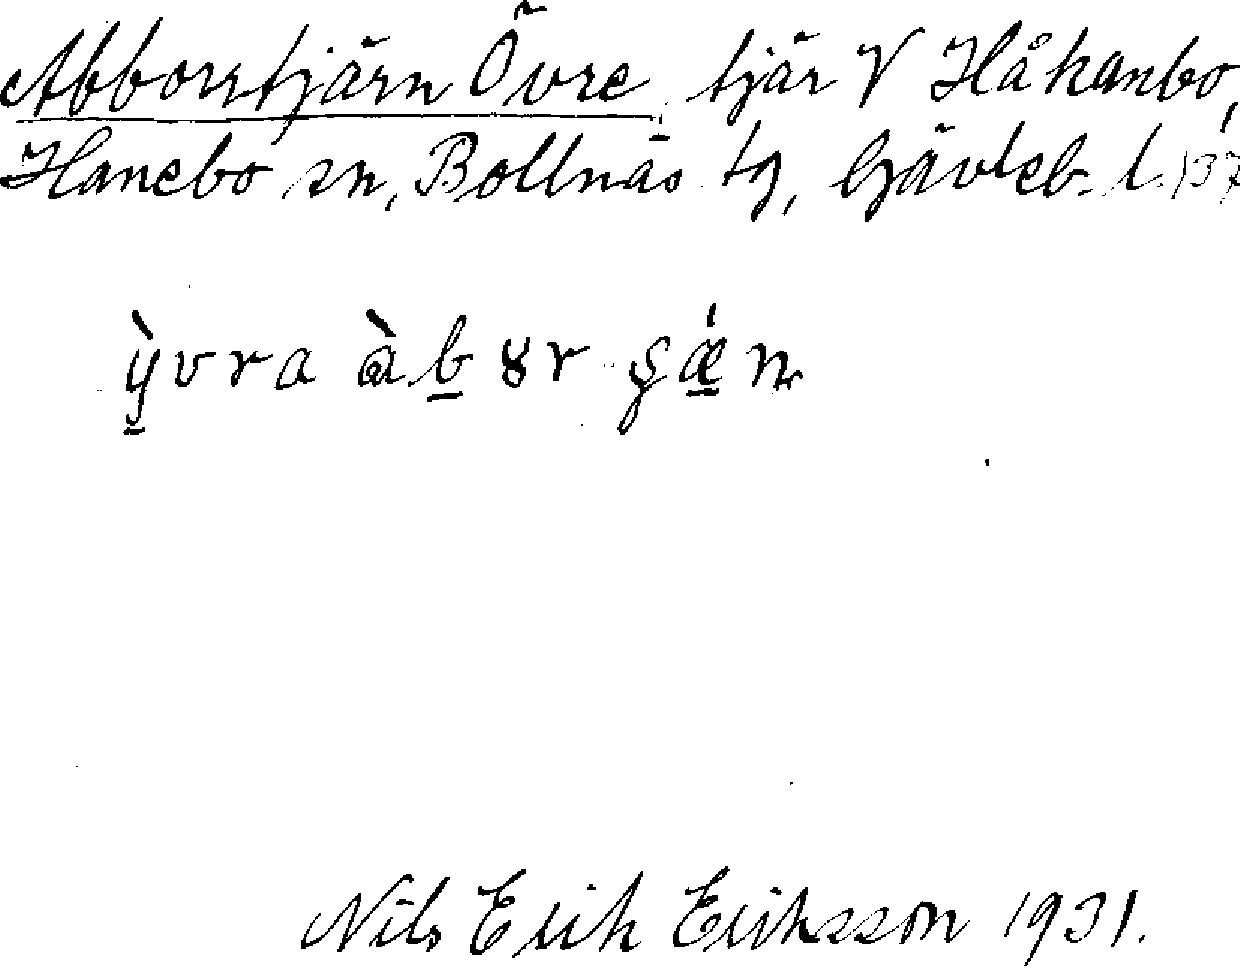 Abborrtjärn Övre, tjär V Håkanbo,
Hanebo sn, Bollnäs tg, Gävleb. l. 137
ỳvra àbɤr ʂǽn
Nils Erik Eriksson 1931.